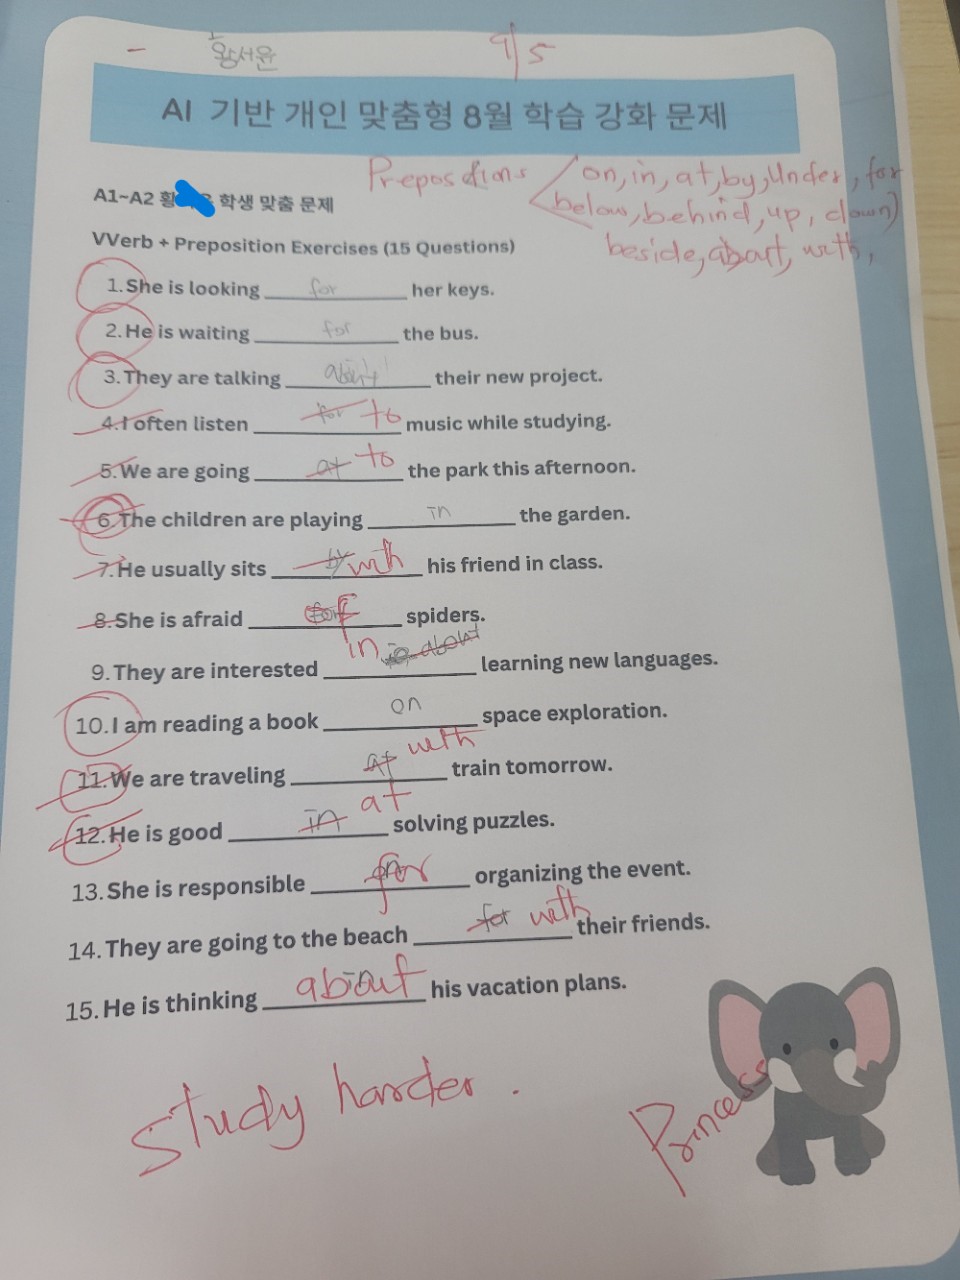 황서윤 9/5
AI 기반 개인 맞춤형 8월 학습 강화 문제
Prepositions on, in, at, by, Under, for
below, behind, up, down)
beside, about, with,
A1~A2 황 학생 맞춤 문제
VVerb + Preposition Exercises (15 Questions)
1. She is looking for her keys.
2. He is waiting for the bus.
3. They are talking about their new project.
4. I often listen for to music while studying.
5. We are going at to the park this afternoon.
6. The children are playing in the garden.
7. He usually sits by with his friend in class.
8. She is afraid of spiders.
9. They are interested in about learning new languages.
10. I am reading a book on space exploration.
11. We are traveling at with train tomorrow.
12. He is good in at solving puzzles.
13. She is responsible for organizing the event.
14. They are going to the beach for with their friends.
15. He is thinking about his vacation plans.
Study harder.
Princess